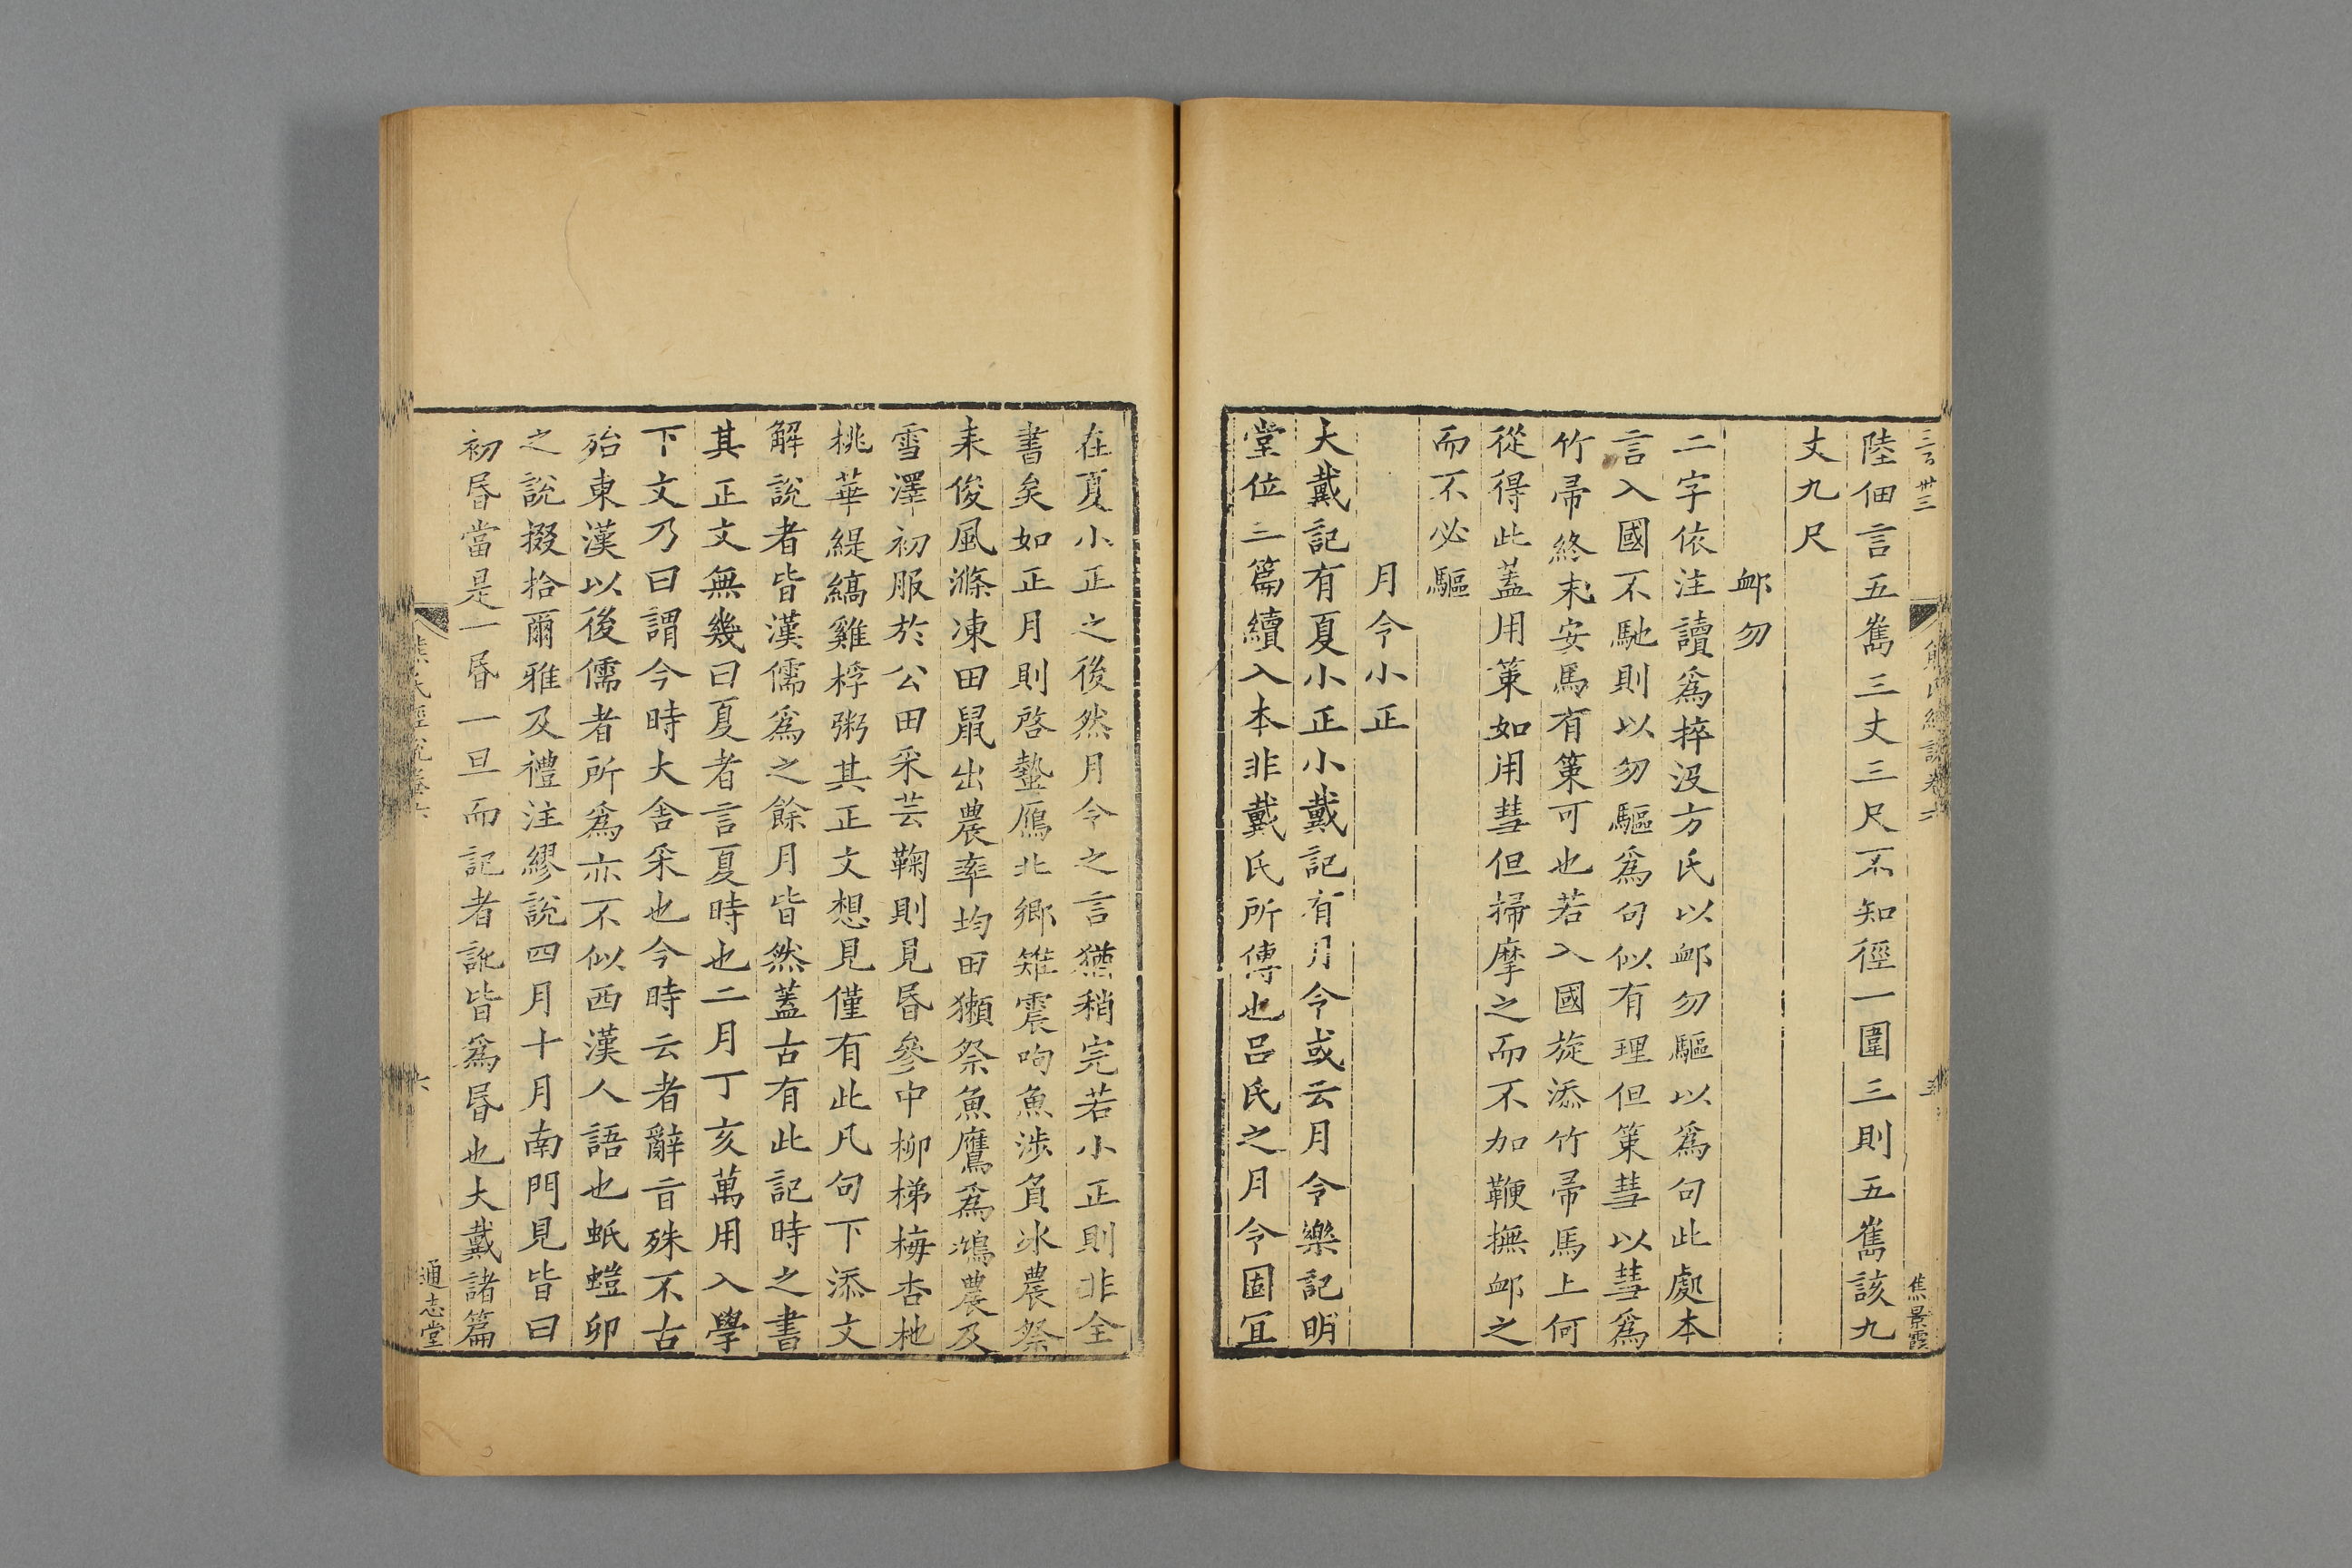 陸佃言五雋三丈三尺不知徑一圍三則五雋該九
丈九尺
䘏勿
二字依注讀爲捽沒方氏以䘏勿驅以爲句此處本
言入國不馳則以勿驅爲句似有理但策彗以彗爲
竹帚終未安馬有策可也若入國旋添竹帚馬上何
從得此蓋用策如用彗但掃摩之而不加鞭撫䘏之
而不必驅
月令小正
大戴記有夏小正小戴記有月令或云月令樂記明
堂位三篇續入本非戴氏所傳也呂氏之月令固冝
在夏小正之後然月令之言猶稍完若小正則非全
書矣如正月則啓蟄鴈北鄉雉震呴魚涉負冰農祭
耒俊風滌凍田鼠出農率均田獺祭魚鷹爲鳩農及
雪澤初服於公田采芸鞠則見昏參中柳梯梅杏杝
桃華緹縞雞桴粥其正文想見僅有此凡句下添文
解說者皆漢儒爲之餘月皆然蓋古有此記時之書
其正文無幾曰夏者言夏時也二月丁亥萬用入學
下文乃曰謂今時大舍采也今時云者辭㫖殊不古
殆東漢以後儒者所爲亦不似西漢人語也蚳螘卵
之說掇拾爾雅及禮注繆說四月十月南門見皆曰
初昏當是一昏一旦而記者訛皆爲昏也大戴諸篇
熊氏經說卷六
五
焦景霞
六
通志堂